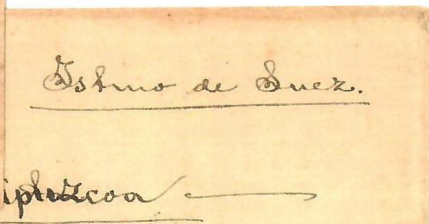 Istmo de Suez.
ipúzcoa